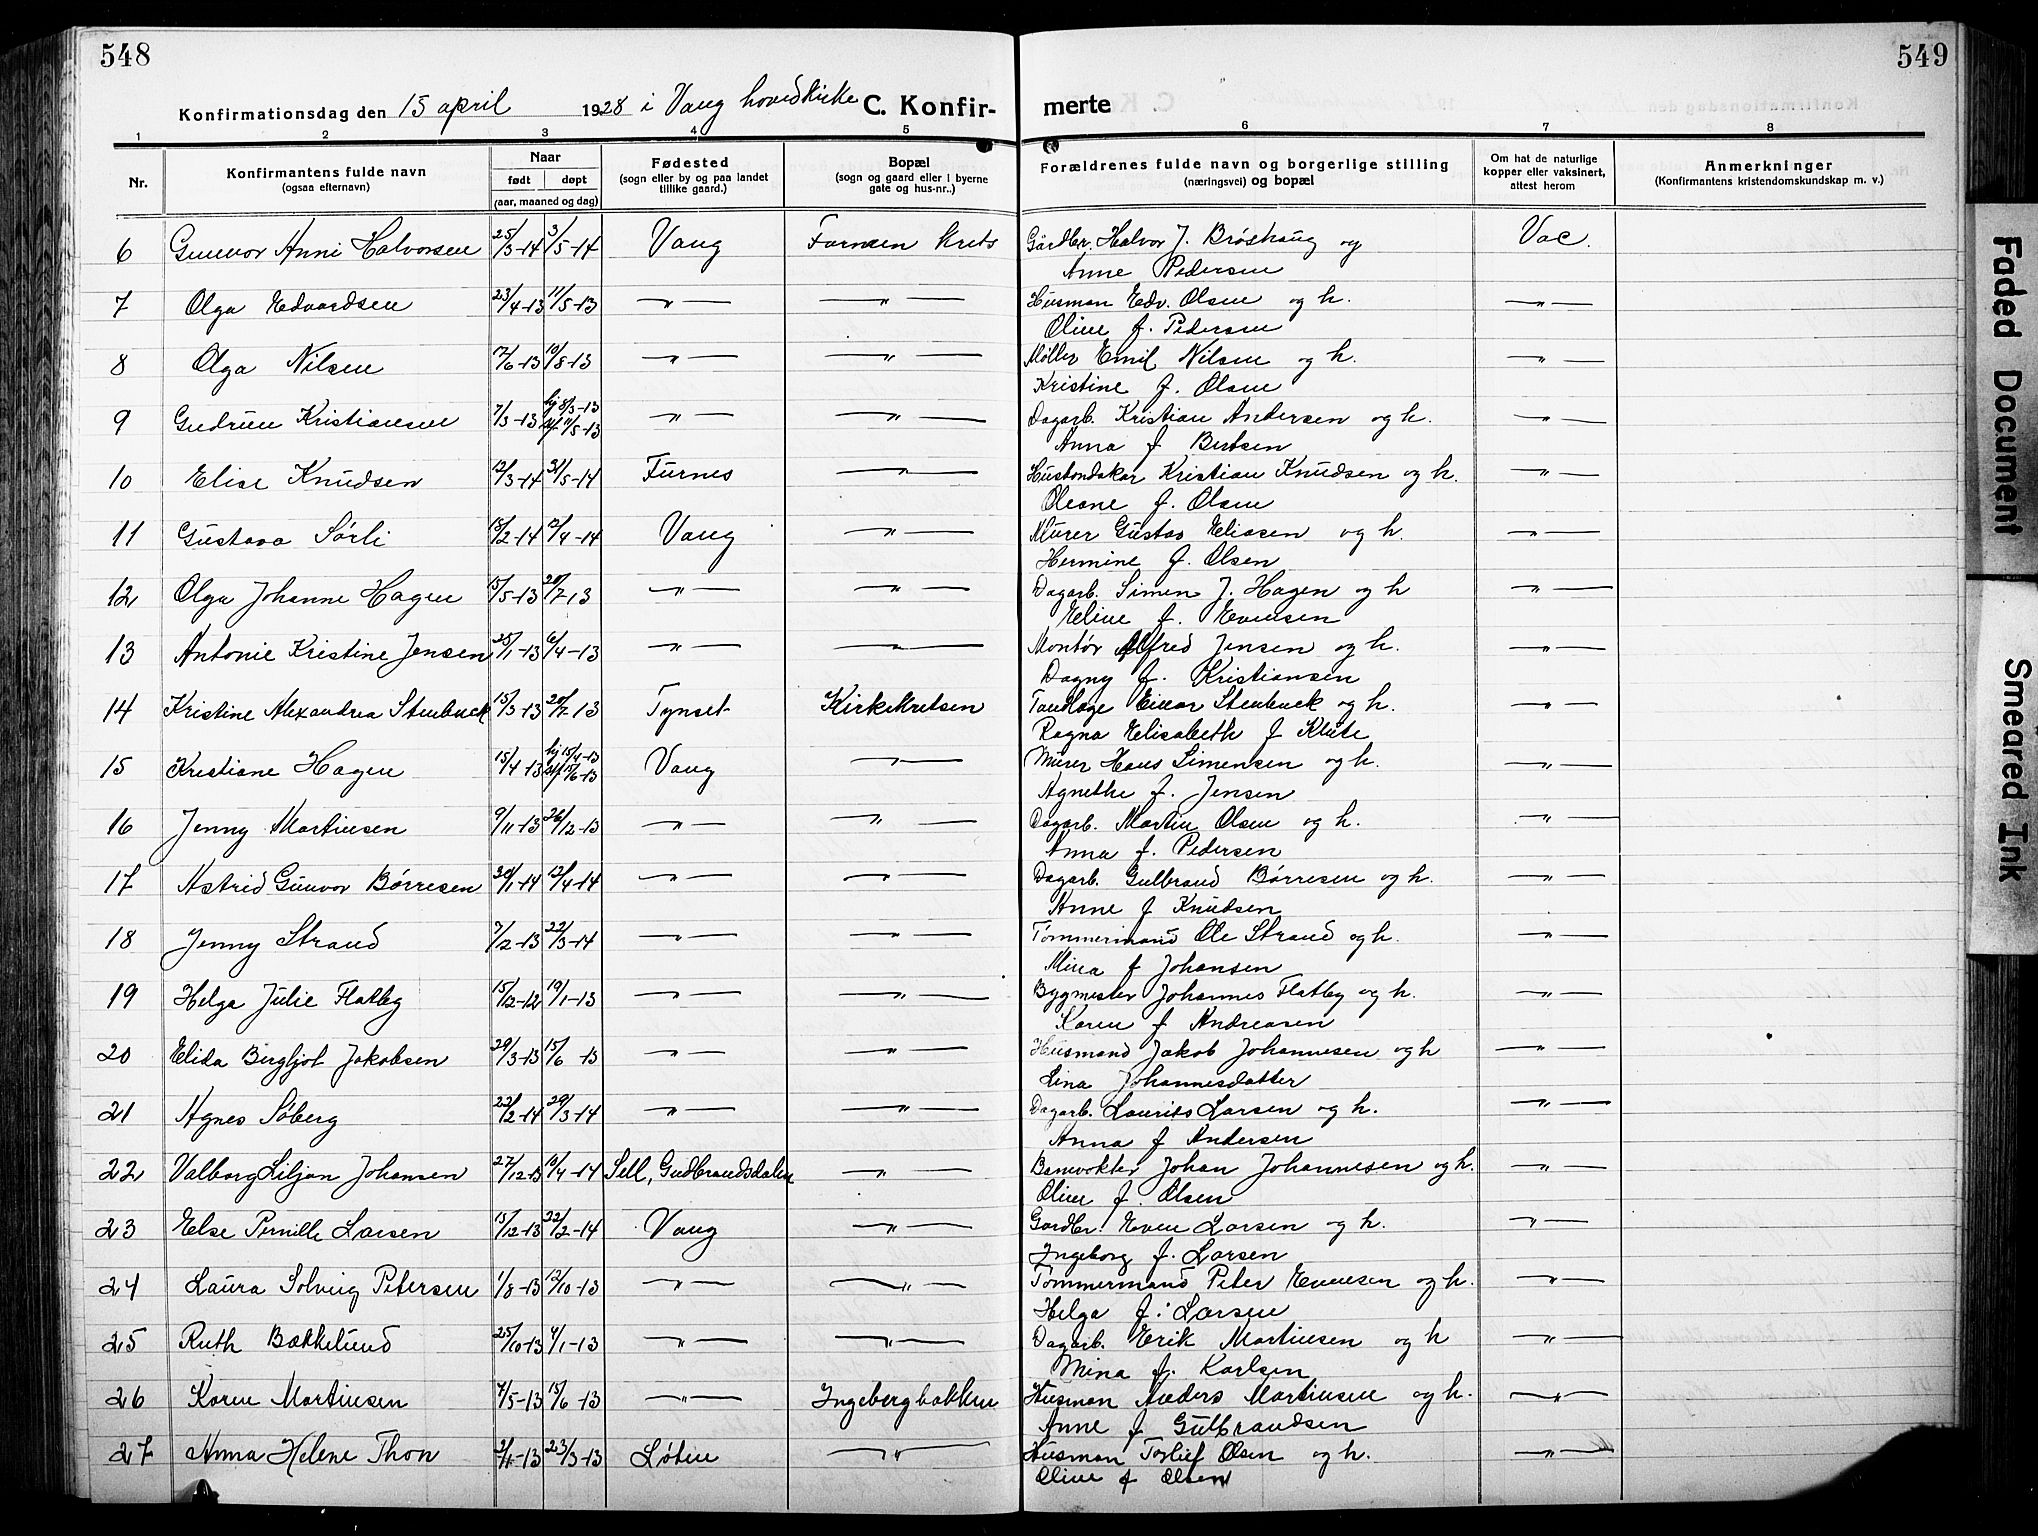 548
549
Konfirmationsdag den 15 april 1928 i Vang hovedkirke C. Konfir-
merte
1 2 3 4 5 6 7 8
Nr.
Konfirmantens fulde navn
(ogsaa efternavn)
Naar
født døpt
(aar, maaned og dag)
Fødested
(sogn eller by og paa landet
tillike gaard.)
Bopæl
(sogn og gaard eller i byerne
gate og hus-nr..)
Forældrenes fulde navn og borgerlige stilling
(næringsvei) og bopæl
Om hat de naturlige
kopper eller vaksinert,
attest herom
Anmerkninger
(Konfirmantens kristendomskundskap m. v.)
6 Gunvor Anni Halvorsen 25/3-14 3/5-14 Vang Furnæn Krets Gårdbr. Halvor J. Brøshaug og Vac.
Anne Pedersen
7 Olga Edvardsen 23/4-13 11/5-13 —"— —"— Husman Edv. Olsen og h. —"—
Oline f. Pedersen
8 Olga Nilsen 17/6-13 10/8-13 —"— —"— Møller Emil Nilsen og h. —"—
Kristine f. Olsen
9 Gudrun Kristiansen 7/3-13 hj 8/3-13 —"— —"— Dagarb. Kristian Andersen og h. —"—
st 11/5-13
Anna f Bertsen
10 Elise Knudsen 12/3-14 31/5-14 Furnes —"— Kristian Knudsen og h. —"—
Oleane f. Olsen
11 Gustava Sørli 15/2-14 12/4-14 Vang —"— Murer Gustav Eliasen og h. —"—
Hermine f. Olsen
12 Olga Johanne Hagen 15/5-13 20/7-13 —"— —"— Dagarb. Simen J. Hagen og h —"—
Eline f. Evensen
13 Antonie Kristine Jensen 25/1-13 6/4-13 —"— —"— Montør Alfred Jensen og h. —"—
Dagny f. Kristiansen
14 Kristine Alexandrea Stenbuck 15/3-13 20/7-13 Tynset Kirkekretsen Tandlæge Einar Stenbuck og h. —"—
Ragna Elisabeth f Klüte
15 Kristiane Hagen 15/4-13 hj 15/4-13 Vang —"— Murer Hans Simensen og h. —"—
st 15/6-13
Agnethe f. Jensen
16 Jenny Martinsen 9/11-13 26/12-13 —"— —"— Dagarb. Martin Olsen og h. —"—
Anna f. Pedersen
17 Astrid Gunvor Børresen 30/1-14 12/4-14 —"— —"— Dagarb. Gulbrand Børresen og h. —"—
Anne f Knudsen
18 Jenny Strand 7/2-13 22/3-14 —"— —"— Tømmermand Ole Strand og h. —"—
Mina f Johansen
19 Helga Julie Flatby 15/12-12 19/1-13 —"— —"— Bygmester Johannes Flatby og h. —"—
Karen f Andreasen
20 Elida Bergljot Jakobsen 29/3-13 15/6 13 —"— —"— Husmand Jakob Johannesen og h —"—
Lina Johannesdatter
21 Agnes Søberg 22/2-14 29/3-14 —"— —"— Dagarb. Laurits Larsen og h. —"—
Anna f Andersen
22 Valborg Liljan Johansen 27/12-13 10/4-14 Sell, Gudbrandsdalen —"— Banevokter Johan Johannesen og h. —"—
Oline f. Olsen
23 Else Pernille Larsen 15/12-13 22/2-14 Vang —"— Gardbr. Even Larsen og h. —"—
Ingeborg f. Larsen
24 Laura Solveig Petersen 1/8-13 12/10-13 —"— —"— Tømmermand Peter Evensen og h. —"—
Helga f. Larsen
25 Ruth Bækkelund 25/10-13 4/1-13 —"— —"— Dagarb. Erik Martinsen og h —"—
Mina f. Karlsen
26 Karen Martinsen 4/5-13 15/6-13 —"— Ingebergbakken Husman Anders Martinsen og h. —"—
Anne f Gulbrandsen
27 Anna Helene Thon 2/1-13 23/3-13 Løten —"— Husman Torlief Olsen og h. —"—
Oline f Olsen
Faded Document
Smeared Ink